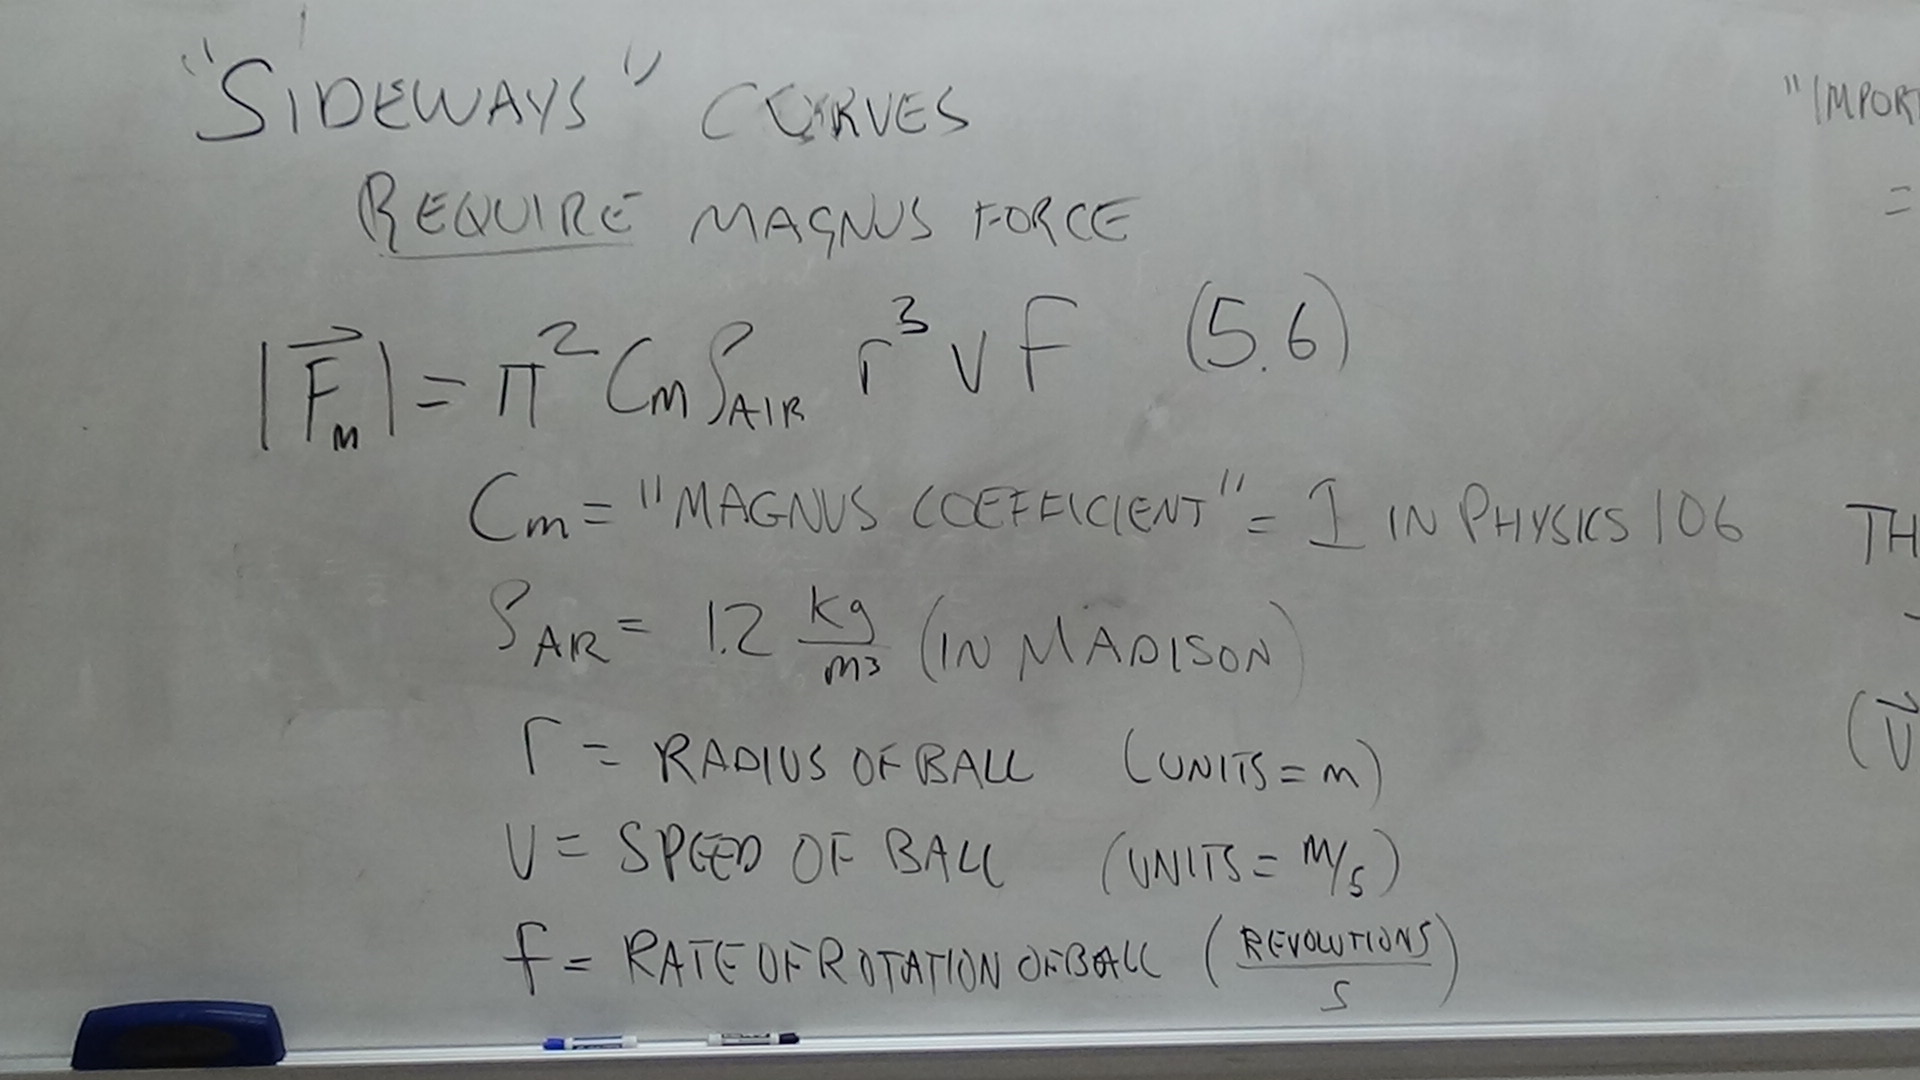 "SIDEWAYS" CURVES
REQUIRE MAGNUS FORCE
|F⃗m| = π² Cm ρAIR r³ v f (5.6)
Cm = "MAGNUS COEFFICIENT" = 1 IN PHYSICS 106
ρAIR = 1.2 kg/m³ (IN MADISON)
r = RADIUS OF BALL (UNITS = m)
v = SPEED OF BALL (UNITS = m/s)
f = RATE OF ROTATION OF BALL (REVOLUTIONS/S)
"IMPORT
=
TH
(v⃗